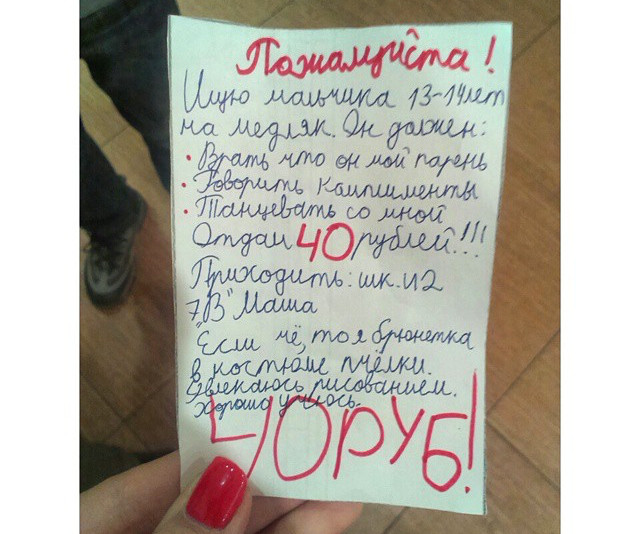 Пожалуйста!
Ищю мальчика 13-14 лет
на медляк. Он должен:
• Врать что он мой парень
• Говорить камплименты
• Танцевать со мной
Отдам 40 рублей!!!
Приходить: шк. н2
7"В" Маша
"Если чё, то я брюнетка
в костюме пчёлки.
Увлекаюсь рисованием.
Хорошо учюсь.
40 руб!